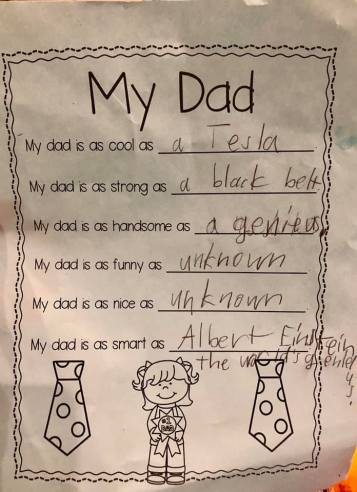 My Dad
My dad is as cool as a Tesla
My dad is as strong as a black belt
My dad is as handsome as a genius
My dad is as funny as unknown
My dad is as nice as unknown
My dad is as smart as Albert Einstein
the world's